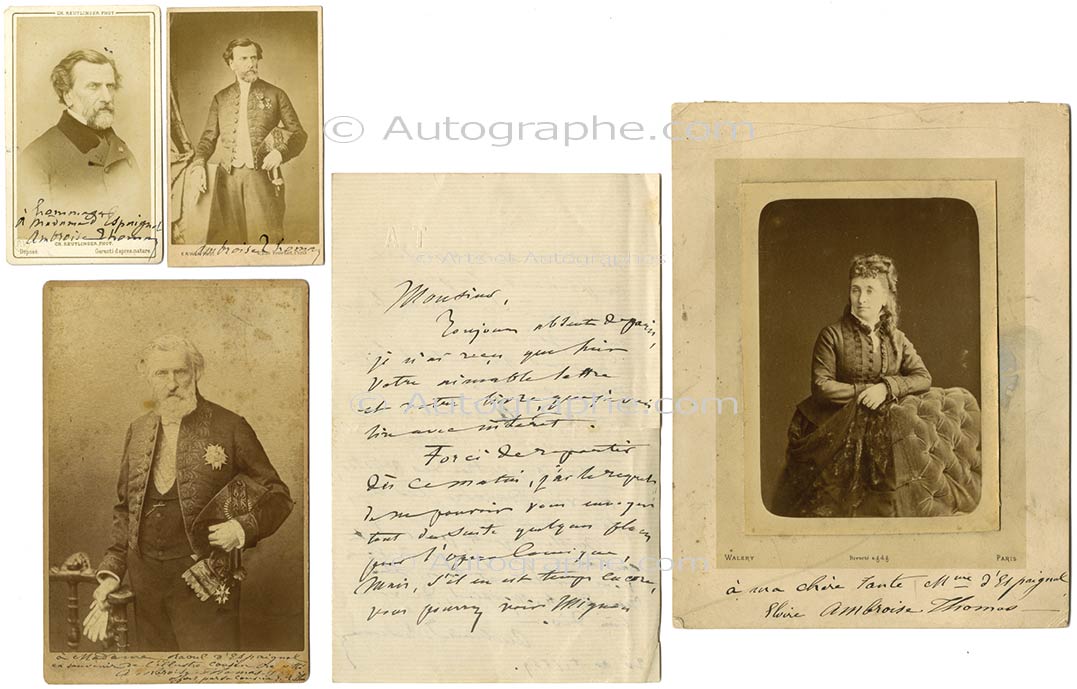 CH. REUTLINGER PHOT.
hommage
à madame d'Espaignol
Ambroise Thomas
CH. REUTLINGER PHOT.
Déposé. Garanti d'après nature
Ambroise Thomas
© Autographe.com
AT
© Arts et Autographes
Monsieur,
Toujours absent de Paris,
je n'ai reçu que hier
votre aimable lettre
et votre livre, que j'ai
lire avec intérêt.
© Autographe.com
Forcé de repartir
dès ce matin, j'ai le regret
de ne pouvoir vous envoyer
tout de suite quelques places
pour l'opéra Comique,
© Autographe.com
Mais, s'il en est temps encore,
vous pourrez voir Mignon
à Madame Raoul d'Espaignol
en souvenir de l'illustre cousin
WALERY Breveté s.g.d.g. PARIS
à ma chère tante Mme d'Espaignol
Elvire Ambroise Thomas